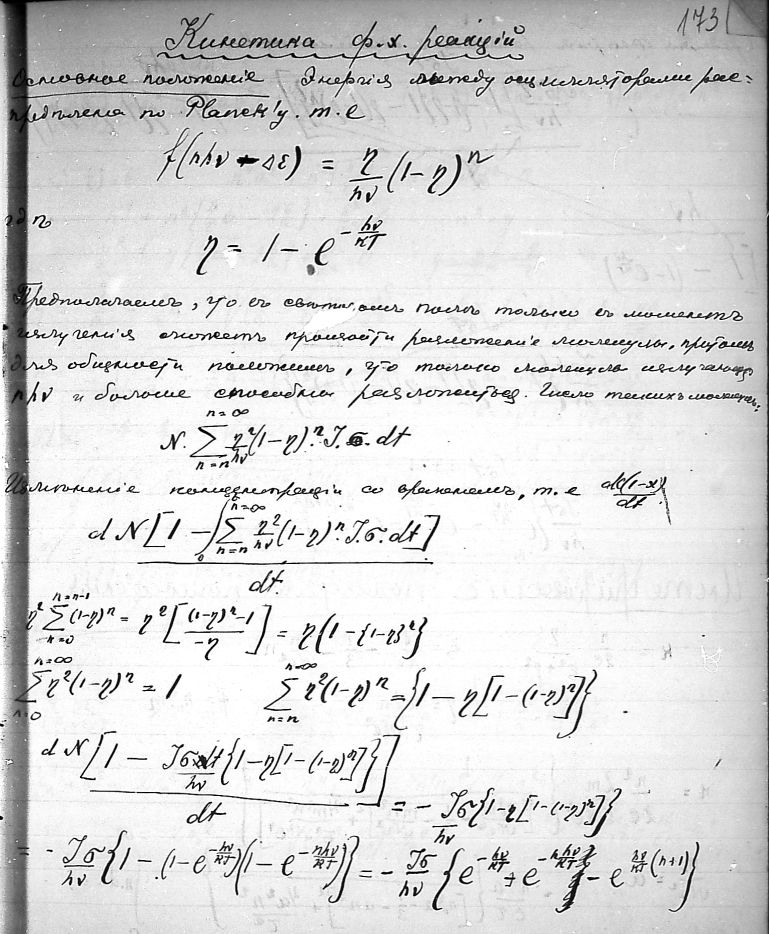 173
Кинетика ф.х. реакцій
Основное положеніе Энергія между осцилляторами рас=
предѣлена по Planck'у. т.е
f(nhν + Δε) = η/hν (1-η)^n
гдѣ
η = 1 - e^{-hν/kT}
Предполагаемъ, что въ свѣтовомъ полѣ только въ моментъ
излученія можетъ произойти разложеніе молекулы, притомъ
для общности положимъ, что только молекулы излучающ
nhν и больше способны разложиться. Число такихъ молекулъ:
N. ∑_{n=n}^{n=∞} η²/hν (1-η)^n. J.σ. dt
Измѣненіе концентраціи со временемъ, т.е d(1-x)/dt
d N[1 - ∫_0 ∑_{n=n}^{n=∞} η²/hν (1-η)^n. J.σ. dt] / dt.
η² ∑_{n=0}^{n=n-1} (1-η)^n = η² [((1-η)^n - 1)/-η] = η(1-{1-η}^n}
∑_{n=0}^{n=∞} η²(1-η)^n = 1 ∑_{n=n}^{n=∞} η²(1-η)^n = {1 - η[1-(1-η)^n]}
d N[1 - Jσdt/hν {1-η[1-(1-η)^n]}] / dt = - Jσ/hν {1-η[1-(1-η)^n]}
= - Jσ/hν {1-(1-e^{-hν/kT})(1-e^{-nhν/kT})} = - Jσ/hν {e^{-hν/kT} + e^{-nhν/kT} - e^{hν/kT (n+1)}}